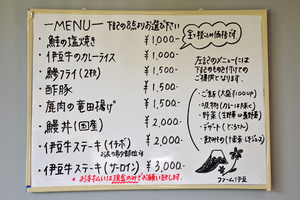 ーMENUー 下記の8点よりお選び下さい
・鮭の塩焼き ¥1,000-
・伊豆牛のカレーライス ¥1,000-
・鯵フライ(2枚) ¥1,500-
・酢豚 ¥1,500-
・鹿肉の竜田揚げ ¥2,000-
・鰻丼(国産) ¥2,000-
・伊豆牛ステーキ(イチボ) ¥2,000-
・伊豆牛ステーキ(サーロイン) ¥3,000-
*お支払いは現金のみでお願い致します。
全て税込み価格です。
左記のメニューには
下記のもの付けての
ご提供となります。
・ご飯(大盛
・吸物(カレーは除く)
・デザート
・飲みもの
ファーム伊豆